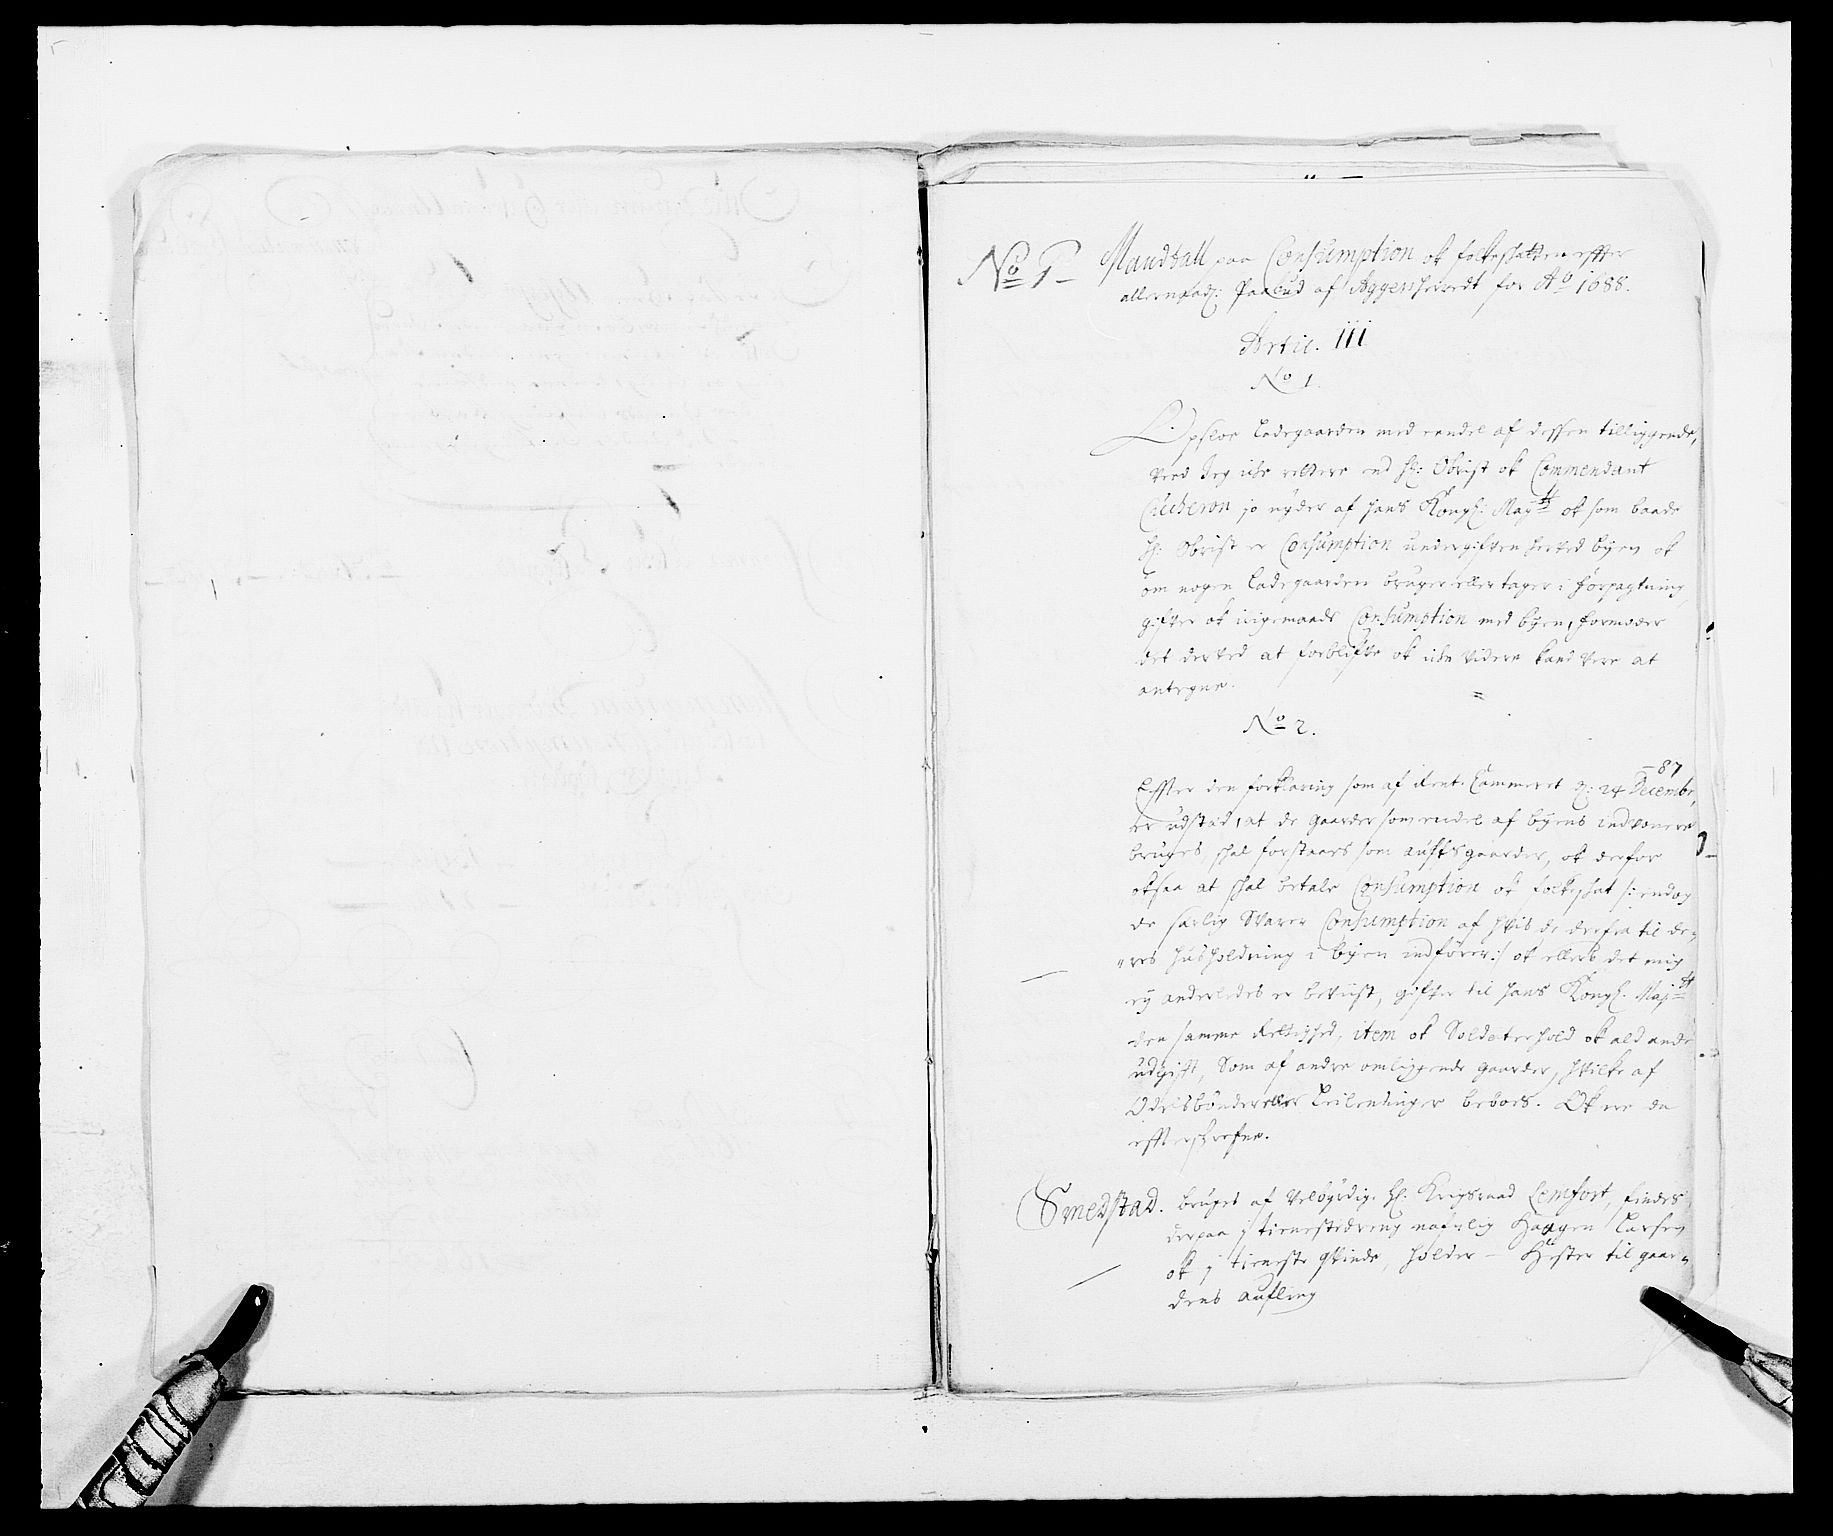 No 1 Mandtall paa Consumption ok folkeskatten effter
allernaad: Paabud af Aggersherredt for Ao 1688.
Artic. III
No 1.
Opsloe Ladegaarden med eendel af dessen tilliggende,
veed Jeg iche rettere end H: Obrist ok Commendant
Cicheron jo nyder af hans Kongl: Maytt ok som baade
H: Obrist er Consumption undergifven herved byen ok
om nogen Ladegaarden bruger eller tager i forpagtning
gifver ok iligemaade Consumption med byen, formoder
det derved at forblifve ok iche videre kand vere at
antegne.
No 2.
Effter den forklaring som af Rente Cammeret D: 24 Decembr, -87
er udstæd, at de gaarder som endel af byens indvonere
bruges, skal forstaaes som auflsgaarder, ok derfor
oksaa at skal betale Consumption ok folkeskat /: endog
de særlig svarer Consumption af hvis de derfra til de-
res husholdning i byen indfører :/ ok ellers det mig
ey anderledes er beviist, gifver til hans Kongl. Majtt
den samme Rettighed, item ok Soldaterhold ok ald ande
udgift, Som af andre omliggende gaarder, hvilke af
Odelsbønder eller Leilendinger beboes. Ok ere de
effterskrefne.
Smedstad. bruges af Velbyrdig. H. Krigsraad Lemfort, findes
derpaa 1 tienestedreng nafnlig Haagen Larsen
ok 1 tieneste qvinde, holder - Hester til gaar-
dens aufling